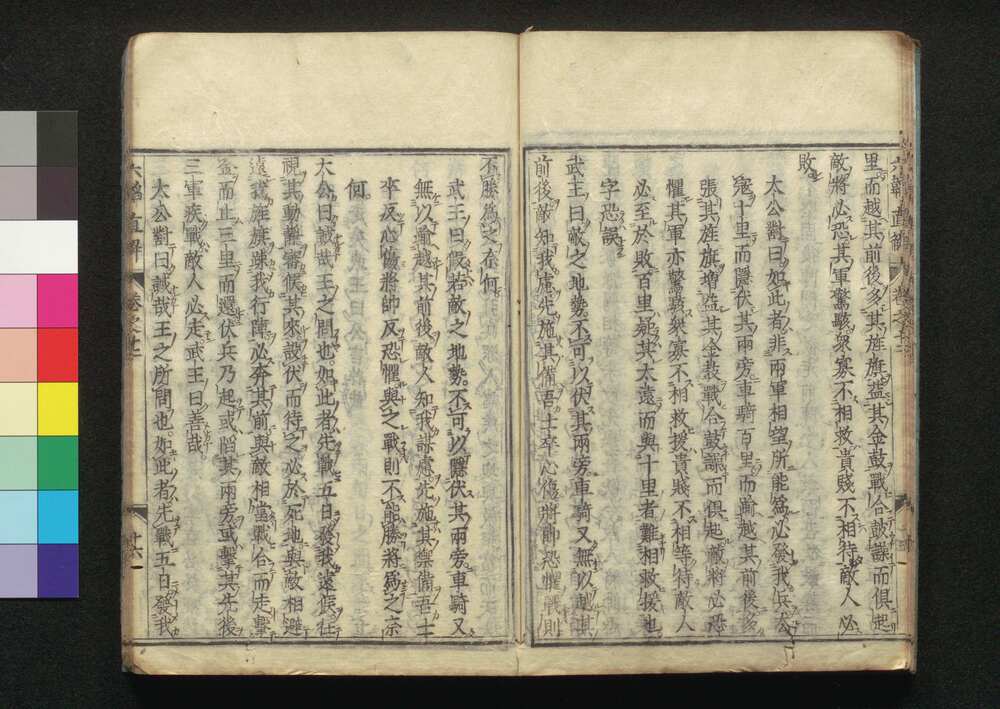 六韜直解 卷之十二
里而越其前後多其旌旗益其金鼓戰合鼓譟而俱起
敵將必恐其軍驚駭衆寡不相救貴賤不相待敵人必
敗
太公對曰如此者非兩軍相望所能爲必發我兵去
寇十里而隱伏其兩旁車騎百里而踰越其前後多
張其旌旗增益其金鼓戰合鼓譟而俱起敵將必恐
懼其軍亦驚駭衆寡不相救援貴賤不相等待敵人
必至於敗百里疑其太遠而與十里者難相救援也
字恐誤
武王曰敵之地勢不可以伏其兩旁車騎又無以越其
前後敵知我慮先施其備吾士卒心傷將帥恐懼戰則
不勝爲之奈何
武王曰假若敵之地勢不可以隱伏其兩旁車騎又
無以踰越其前後敵人知我謀慮先施其禦備吾士
卒反心傷將帥反恐懼與之戰則不能勝將爲之奈
何
太公曰誠哉王之問也如此者先戰五日發我遠候往
視其動靜審候其來設伏而待之必於死地與敵相避
遠我旌旗踈我行陣必奔其前與敵相當戰合而走擊
金而止三里而還伏兵乃起或陷其兩旁或擊其先後
三軍疾戰敵人必走武王曰善哉
太公對曰誠哉王之所問也如此者先戰五日發我
六韜直解 卷之十二 十六